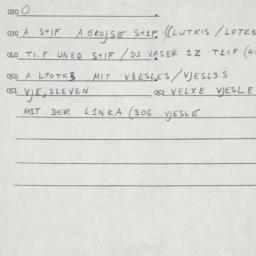 020 O
030 A STIF A GROJSE STIF ((LUTKIS / LOTKS
040 TIF UNED STIF / DI VASER IZ TIIF (4
050 A LJOTKS MIT VJESLES / VJESLES
051 VJE, SLEVEN 052 VELXE VJESLE
MIT DER LINKA (306 VJESLE